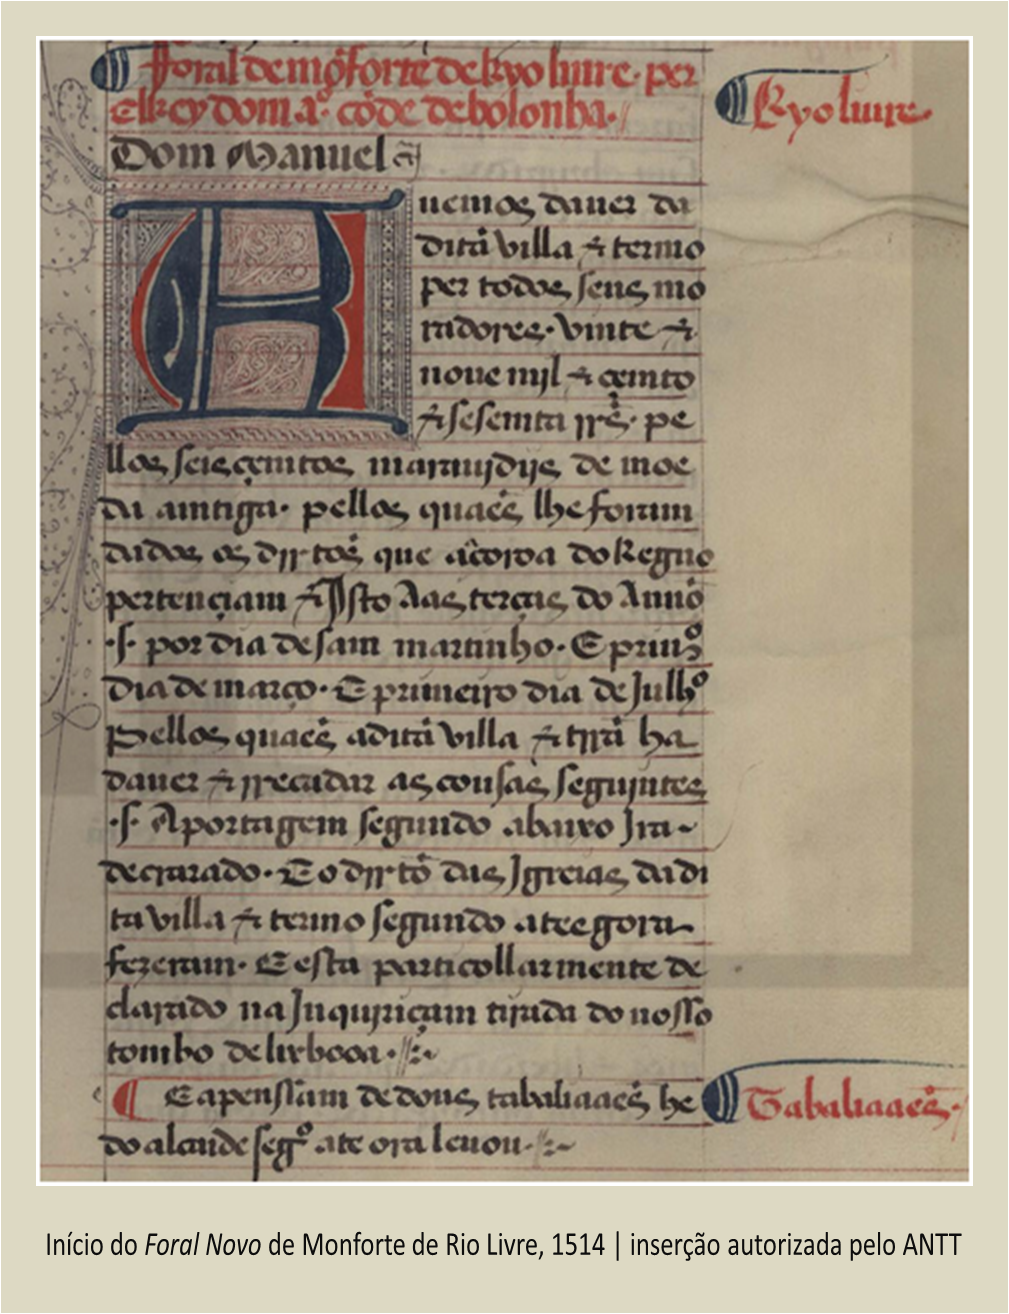 Foral de mõforte de Ryo liure. per
ElRey dom aº. cõde de bolonha.
Ryo liure
Dom Manuel
Auemos dauer da
dita villa & termo
per todos seus mo
radores. vinte &
noue mjl & çemto
& sesemta rrs. pe
llos seisçemtos marauijdijs de moe
da amtiga. pellos quaes lhe foram
dados os dirtos que a coroa do Regno
pertençiam & Jsto Aas terças do Anno
.s. por dia de sam martinho. E primº
dia de março. E primeiro dia de Julhº
Pellos quaes a dita villa & trra ha
dauer & rrecadar as cousas seguintes
.s. A portagem segundo abaixo Jra
decrarado. E o dirto das Jgreias da di
ta villa & termo segundo atee gora
fezeram. E esta particollarmente de
clarado na Jnquiriçam tirada do nosso
tombo de lixboaa.
E a penssam de dous tabaliaaes he
Tabaliaaes.
do alcaide segº ate ora leuou.
Início do Foral Novo de Monforte de Rio Livre, 1514 | inserção autorizada pelo ANTT